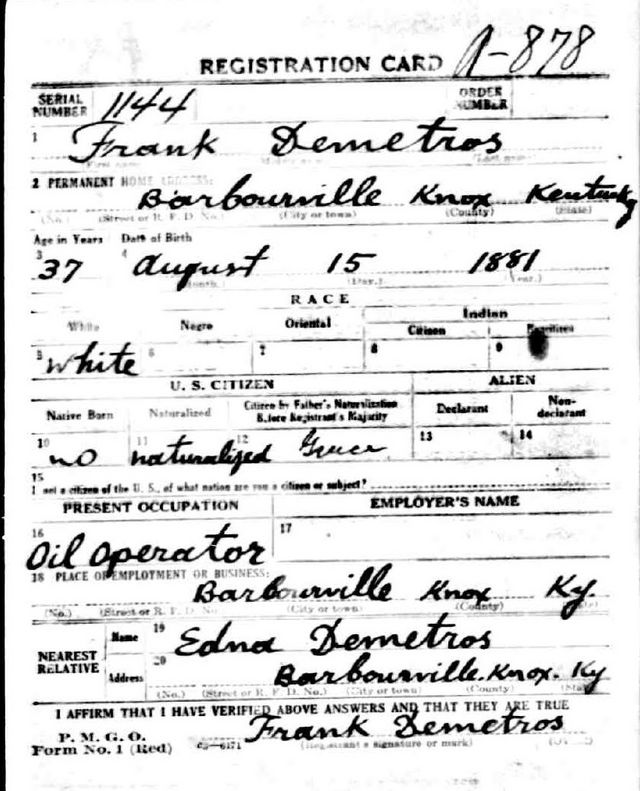 REGISTRATION CARD A-878
SERIAL NUMBER 1144 ORDER NUMBER
1 Frank Demetros
2 PERMANENT HOME ADDRESS:
Barbourville Knox Kentucky
(No.) (Street or R. F. D. No.) (City or town) (County) (State)
Age in Years Date of Birth
3 37 4 August 15 1881
(Month.) (Day.) (Year.)
RACE
White Negro Oriental Indian
Citizen
5 White 6 7 8 9
U. S. CITIZEN ALIEN
Native Born Naturalized Citizen by Father's Naturalization Before Registrant's Majority Declarant Non-declarant
10 no 11 naturalized 12 Greece 13 14
15
not a citizen of the U. S., of what nation are you a citizen or subject?
PRESENT OCCUPATION EMPLOYER'S NAME
16 Oil Operator 17
18 PLACE OF EMPLOYMENT OR BUSINESS:
Barbourville Knox Ky.
(No.) (Street or R. F. D. No.) (City or town) (County)
NEAREST RELATIVE Name 19 Edna Demetros
Address 20 Barbourville. Knox. Ky
(No.) (Street or R. F. D. No.) (City or town) (County) (State)
I AFFIRM THAT I HAVE VERIFIED ABOVE ANSWERS AND THAT THEY ARE TRUE
P. M. G. O.
Form No. 1 (Red) Frank Demetros
(Registrant's signature or mark)